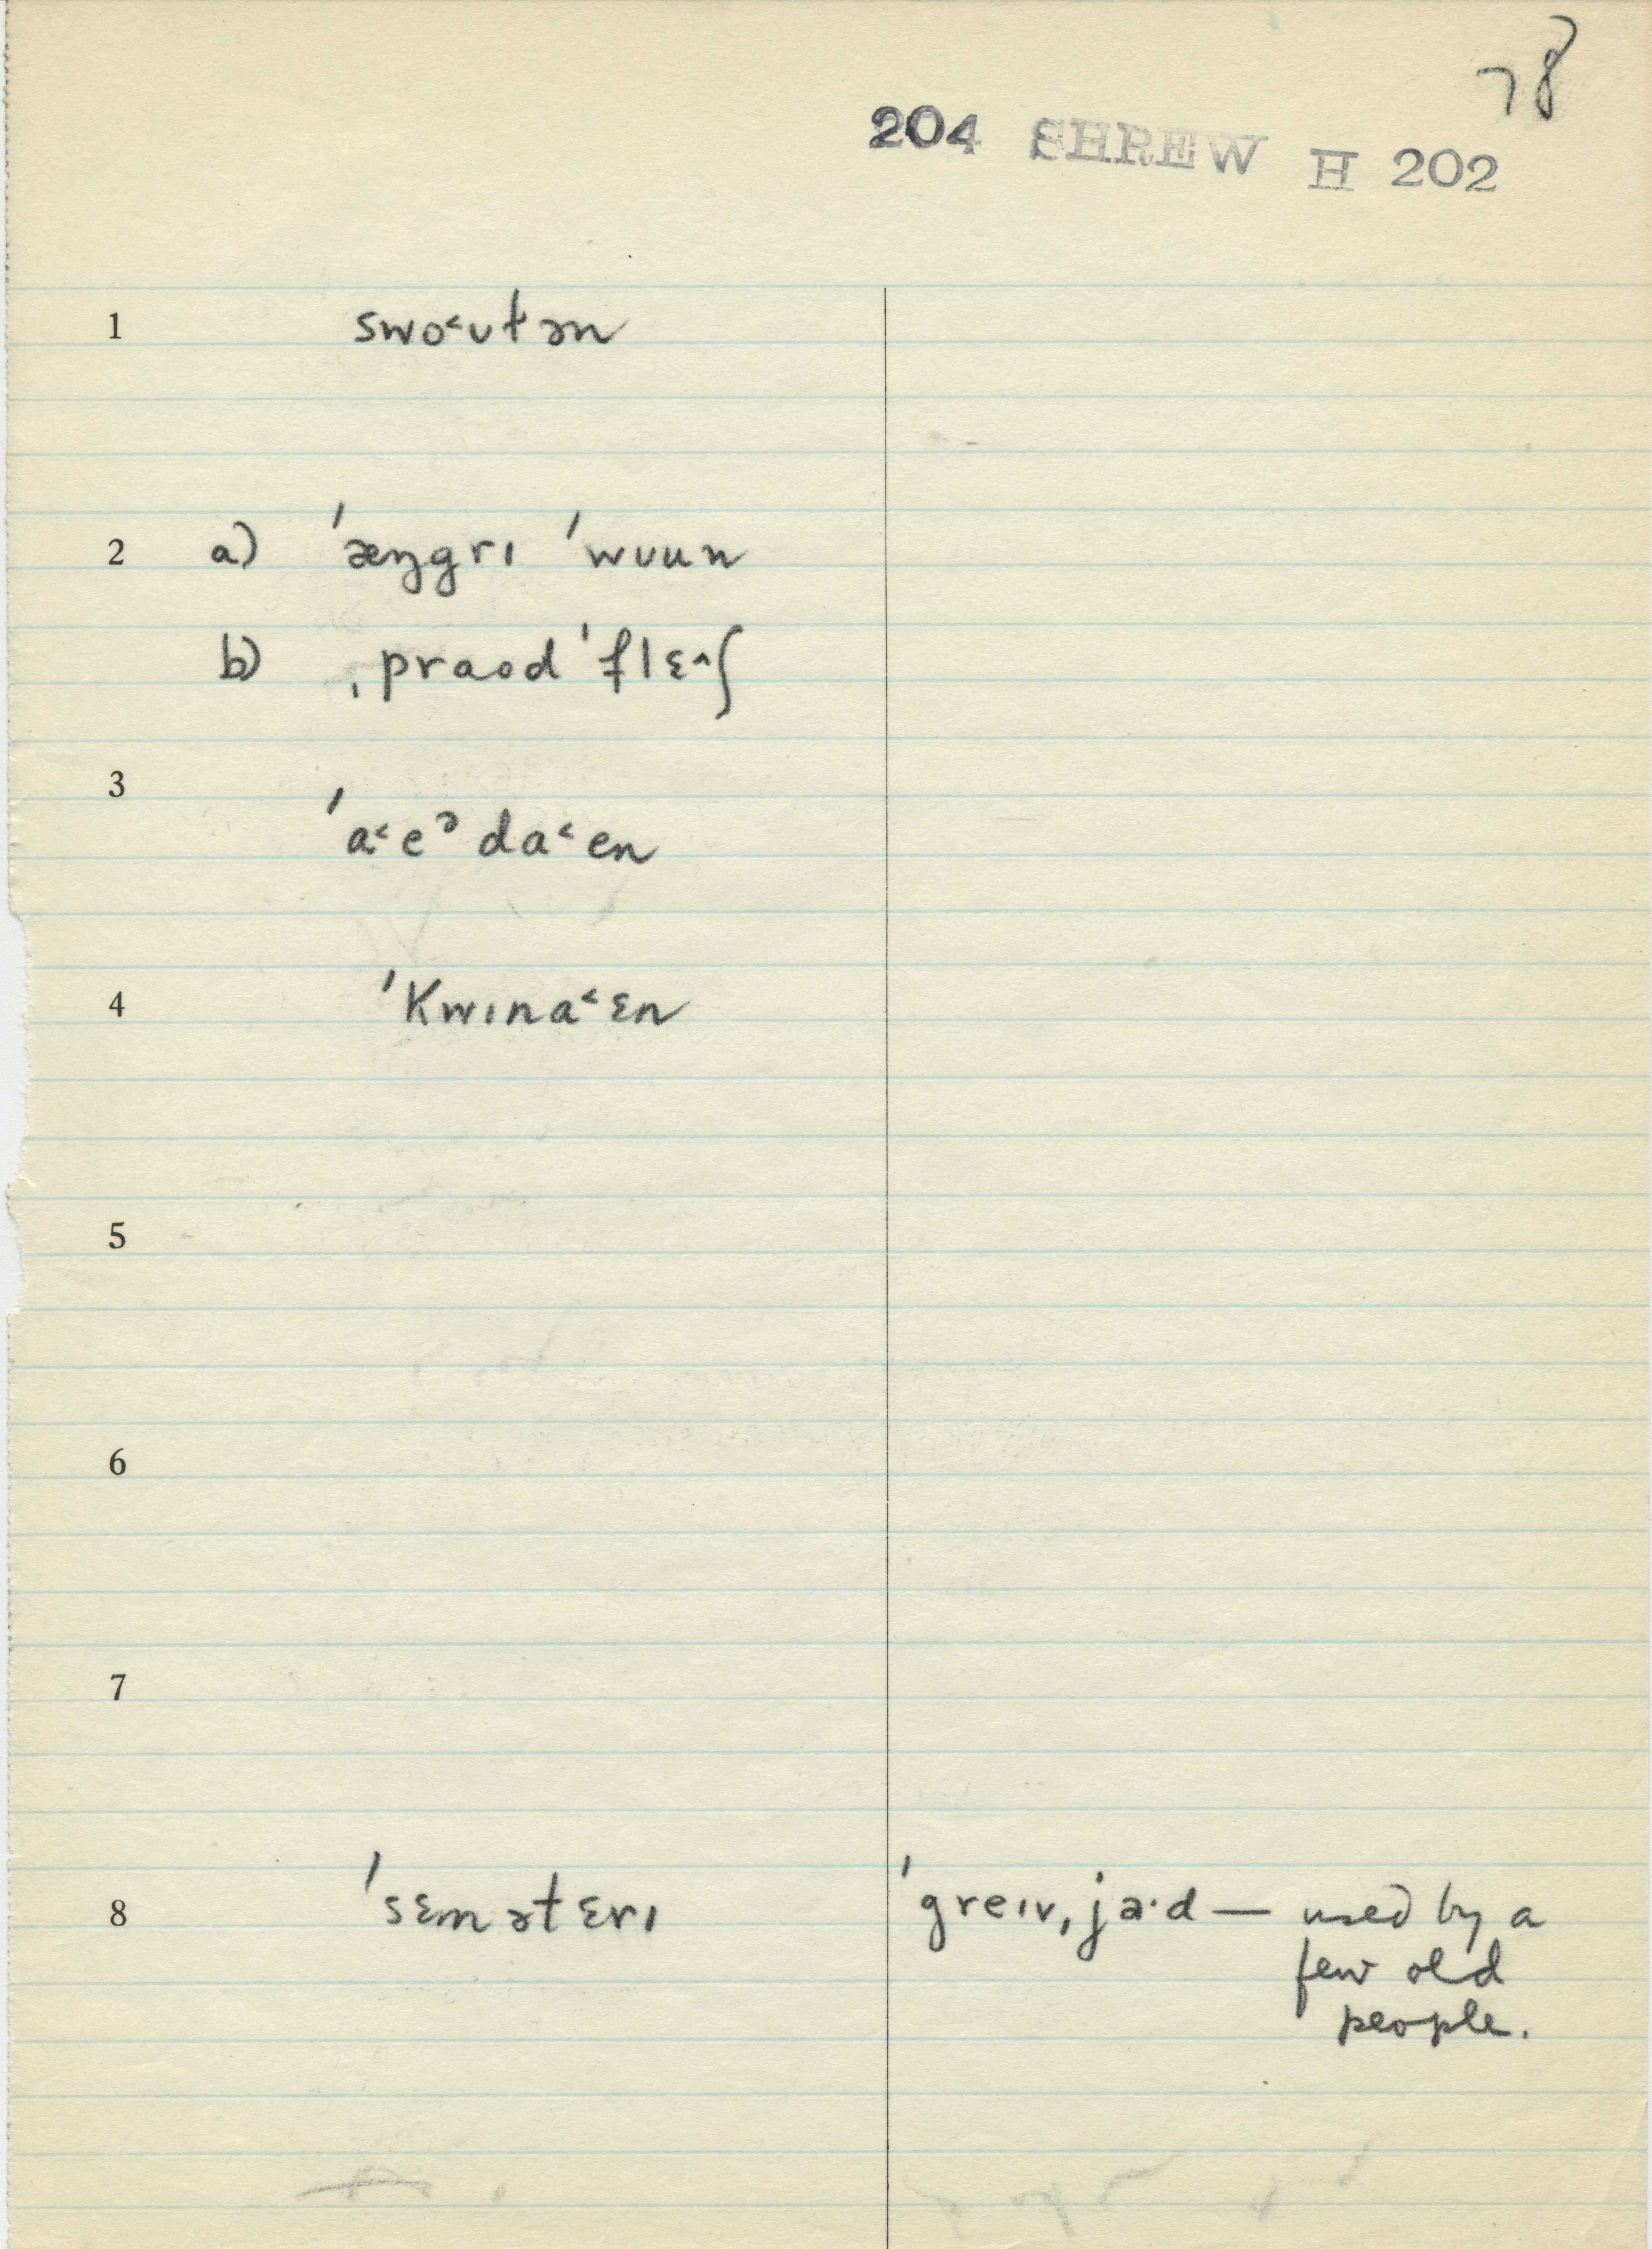 78
204 SHREW H 202
1 swo˂ʊt̬ən
2 a) ˈæŋgrɪ ˈwuun
b) ˌpraod ˈflɛ˄ʃ
3 ˈa˂eᵊda˂en
4 ˈkwɪna˂ɛn
5
6
7
8 ˈsɛmətɛrɪ ˈgreɪv,ja·d — used by a
few old
people.